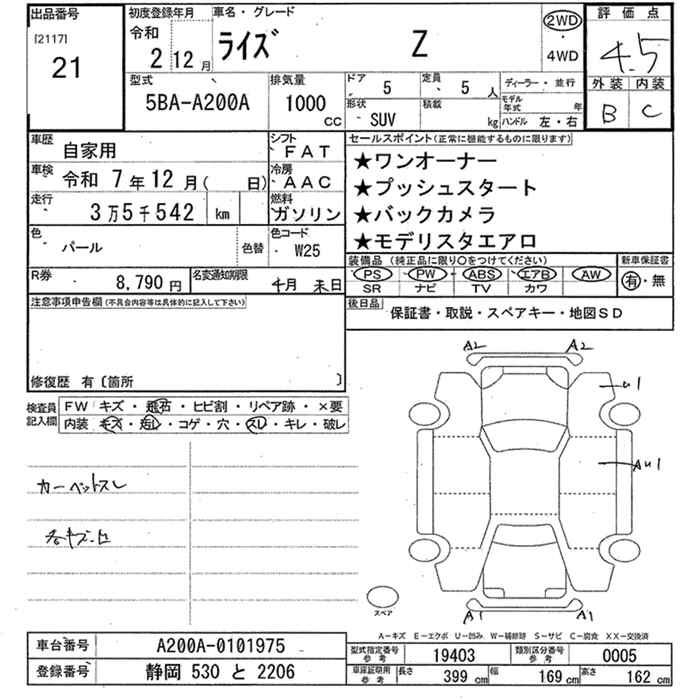 出品番号
[2117]
21
初度登録年月
令和
2 12 月
車名・グレード
ライズ Z
2WD
・
4WD
評価点
4.5
外装 内装
B C
型式
5BA-A200A
排気量
1000
cc
ドア
5
定員
5 人
形状
SUV
積載
kg
ディーラー・並行
モデル年式 年
ハンドル 左・右
車歴 自家用
シフト FAT
車検 令和 7 年 12 月( 日)
冷房 AAC
走行 3万5千542 km
燃料 ガソリン
色 パール 色替
色コード W25
R券 8,790 円
名変通知期限 4月 末日
セールスポイント(正常に機能するものに限ります)
★ワンオーナー
★プッシュスタート
★バックカメラ
★モデリスタエアロ
装備品(純正品に限り○をつけてください)
PS PW ABS エアB AW
SR ナビ TV カワ
新車保証書
有・無
後日品
保証書・取説・スペアキー・地図SD
注意事項申告欄(不具合内容等は具体的に記入して下さい)
修復歴 有〔箇所 〕
検査員記入欄
FW キズ・飛石・ヒビ割・リペア跡・×要
内装 キズ・汚レ・コゲ・穴・スレ・キレ・破レ
カーペットスレ
A2 A2
U1
AU1
A1 A1
スペア
A―キズ E―エクボ U―凹み W―補修跡 S―サビ C―腐食 XX―交換済
車台番号 A200A-0101975
登録番号 静岡 530 と 2206
型式指定番号 参考 19403
類別区分番号 参考 0005
車庫証明用 参考 長さ 399 cm 幅 169 cm 高さ 162 cm